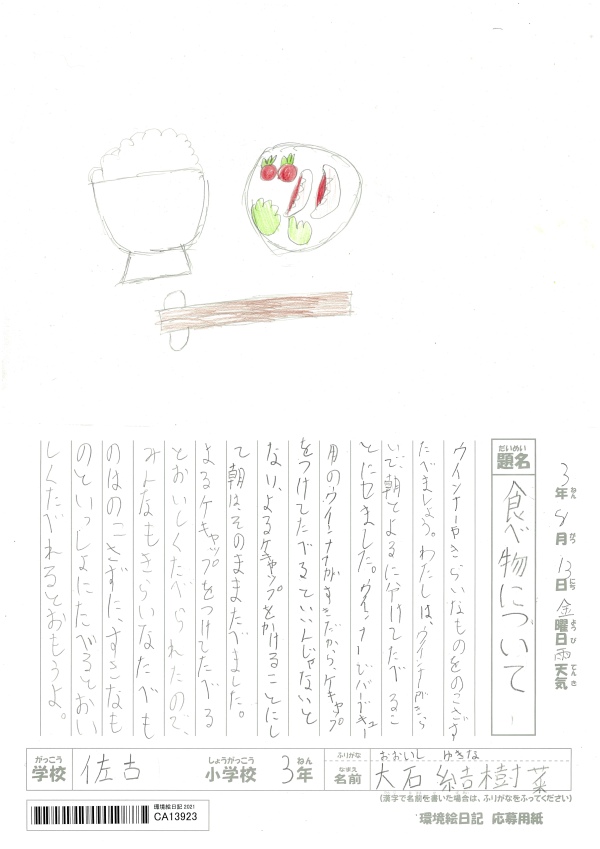 3年ねん 8月がつ 13日にち 金曜日ようび 雨天気てんき
題名だいめい 食べ物について
ウインナーやきらいなものをのこさず
たべましょう。わたしは、ウインナーがきら
いで、朝とよるにわけてたべるこ
とにしました。ウインナーじゃバーベキュー
用のウインナーがすきだから、ケチャップ
をつけてたべるていいんじゃないと
ない、よるケチャップをかけることにし
て朝は、そのままたべました。
よるケチャップをつけてたべる
とおいしくたべられたので、
みんなもきらいなたべも
のはのこさずに、すきなも
のといっしょにたべるとおい
しくたべれるとおもうよ。
学校がっこう 佐古 小学校しょうがっこう 3年ねん
ふりがな おおいし ゆきな
名前なまえ 大石 結樹菜
(漢字で名前を書いた場合は、ふりがなをふってください)
環境絵日記 2021
CA13923
環境絵日記 応募用紙